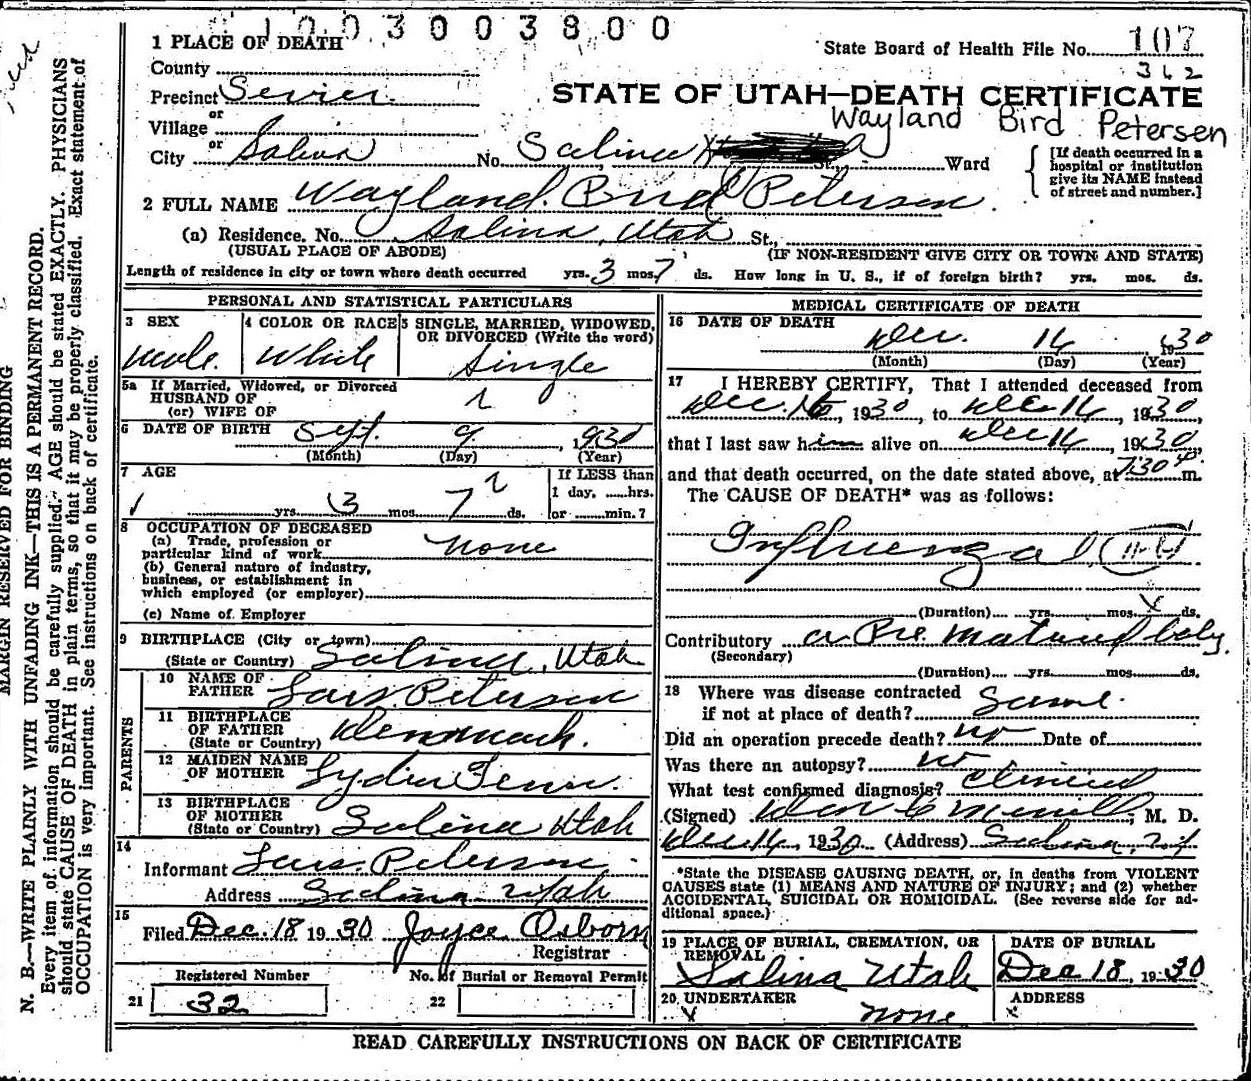 1003003800
1 PLACE OF DEATH
State Board of Health File No. 107
342
County
Precinct Sevier
STATE OF UTAH—DEATH CERTIFICATE
or
Village
Wayland Bird Petersen
or
City Salina No. Salina St., Ward
[If death occurred in a hospital or institution give its NAME instead of street and number.]
2 FULL NAME Wayland Bird Petersen
(a) Residence. No. Salina, Utah St.,
(USUAL PLACE OF ABODE) (IF NON-RESIDENT GIVE CITY OR TOWN AND STATE)
Length of residence in city or town where death occurred yrs. 3 mos. 7 ds. How long in U. S., if of foreign birth? yrs. mos. ds.
PERSONAL AND STATISTICAL PARTICULARS
3 SEX 4 COLOR OR RACE 5 SINGLE, MARRIED, WIDOWED, OR DIVORCED (Write the word)
Male White Single
5a If Married, Widowed, or Divorced
HUSBAND OF
(or) WIFE OF
6 DATE OF BIRTH Sept. 9, 1930
(Month) (Day) (Year)
7 AGE If LESS than
yrs. 3 mos. 7 ds. 1 day, hrs.
or min.?
8 OCCUPATION OF DECEASED
(a) Trade, profession or
particular kind of work None
(b) General nature of industry,
business, or establishment in
which employed (or employer)
(c) Name of Employer
9 BIRTHPLACE (City or town)
(State or Country) Salina, Utah
PARENTS
10 NAME OF
FATHER Lars Petersen
11 BIRTHPLACE
OF FATHER
(State or Country) Denmark.
12 MAIDEN NAME
OF MOTHER Lydia
13 BIRTHPLACE
OF MOTHER
(State or Country) Salina Utah
14
Informant Lars Petersen
Address Salina Utah
15
Filed Dec. 18 1930 Joyce Osborn
Registrar
Registered Number No. of Burial or Removal Permit
21 32 22
MEDICAL CERTIFICATE OF DEATH
16 DATE OF DEATH
Dec. 16 1930
(Month) (Day) (Year)
17 I HEREBY CERTIFY, That I attended deceased from
Dec. 16, 1930 to Dec 16, 1930,
that I last saw him alive on Dec 16, 1930,
and that death occurred, on the date stated above, at 7:30 m.
The CAUSE OF DEATH* was as follows:
Influenza
(Duration) yrs. mos. ds.
Contributory a Pre. matured baby.
(Secondary)
(Duration) yrs. mos. ds.
18 Where was disease contracted
if not at place of death? Same.
Did an operation precede death? No Date of
Was there an autopsy? no
What test confirmed diagnosis? Clinical
(Signed) Merrill, M. D.
Dec 16, 1930 (Address) Salina, Ut
*State the DISEASE CAUSING DEATH, or, in deaths from VIOLENT
CAUSES state (1) MEANS AND NATURE OF INJURY; and (2) whether
ACCIDENTAL, SUICIDAL OR HOMICIDAL. (See reverse side for ad-
ditional space.)
19 PLACE OF BURIAL, CREMATION, OR REMOVAL DATE OF BURIAL
Salina Utah Dec 18, 1930
20 UNDERTAKER ADDRESS
none
READ CAREFULLY INSTRUCTIONS ON BACK OF CERTIFICATE
MARGIN RESERVED FOR BINDING
N. B.—WRITE PLAINLY WITH UNFADING INK—THIS IS A PERMANENT RECORD.
Every item of information should be carefully supplied. AGE should be stated EXACTLY. PHYSICIANS
should state CAUSE OF DEATH in plain terms, so that it may be properly classified. Exact statement of
OCCUPATION is very important. See instructions on back of certificate.